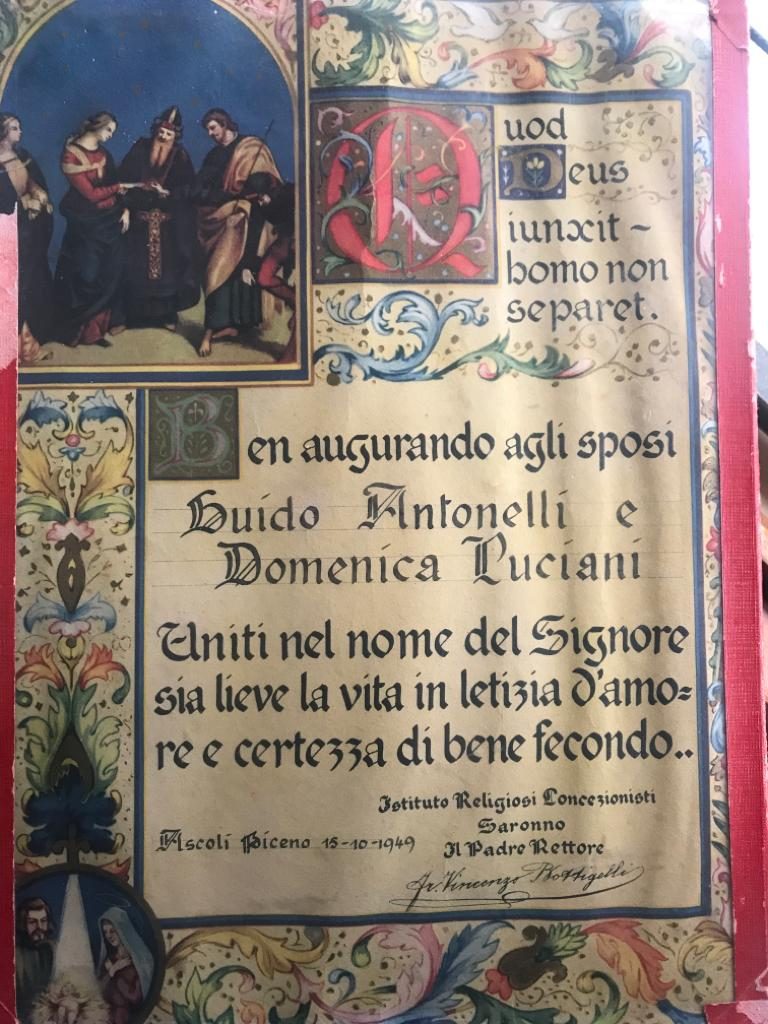 Quod
Deus
iunxit ~
homo non
separet.
Ben augurando agli sposi
Guido Antonelli e
Domenica Luciani
Uniti nel nome del Signore
sia lieve la vita in letizia d'amo=
re e certezza di bene fecondo..
Istituto Religiosi Concezionisti
Saronno
Ascoli Piceno 15-10-1949
Il Padre Rettore
Fr. Vincenzo Bottigelli